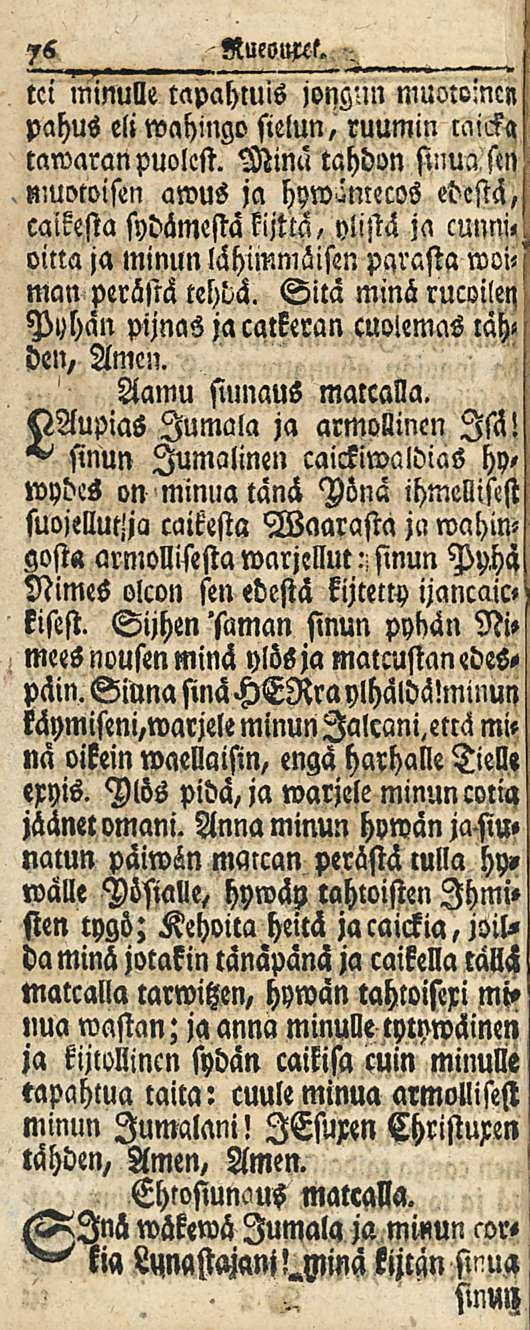 76 Rucouxet.
tei minulle tapahtuis jongun muotoinen
pahus eli wahingo sielun, ruumin taicka
tawaran puolest. Minä tahdon sinua sen
muotoisen awus ja hywäntecos edestä,
caikesta sydämestä kijttä, ylistä ja cunni-
oitta ja minun lähimmäisen parasta woi-
man perästä tehdä. Sitä minä rucoilen
Pyhän pijnas ja catkeran cuolemas täh-
den, Amen.
Aamu siunaus matcalla.
LAupias Jumala ja armollinen Isä!
sinun Jumalinen caickiwaldias hy-
wydes on minua tänä Yönä ihmellisest
suojellut ja caikesta Waarasta ja wahin-
gosta armollisesta warjellut: sinun Pyhä
Nimes olcon sen edestä kijtetty ijancaic-
kisest. Sijhen saman sinun pyhän Ni-
mees nousen minä ylös ja matcustan edes-
päin. Siuna sinä HERra ylhäldä minun
käymiseni, warjele minun Jalcani, että mi-
nä oikein waellaisin, engä harhalle Tielle
exyis. Ylös pidä, ja warjele minun cotia
jäänet omani. Anna minun hywän ja siu-
natun päiwän matcan perästä tulla hy-
wälle Yösialle, hywäin tahtoisten Ihmi-
sten tygö; Kehoita heitä ja caickia, joil-
da minä jotakin tänäpänä ja caikella tällä
matcalla tarwitzen, hywän tahtoisexi mi-
nua wastan; ja anna minulle tytywäinen
ja kijtollinen sydän caikisa cuin minulle
tapahtua taita: cuule minua armollisest
minun Jumalani! JEsuxen Christuxen
tähden, Amen, Amen.
Ehtosiunaus matcalla.
SInä wäkewä Jumala ja minun cor-
kia Lunastajani! minä kijtän sinua
sinun